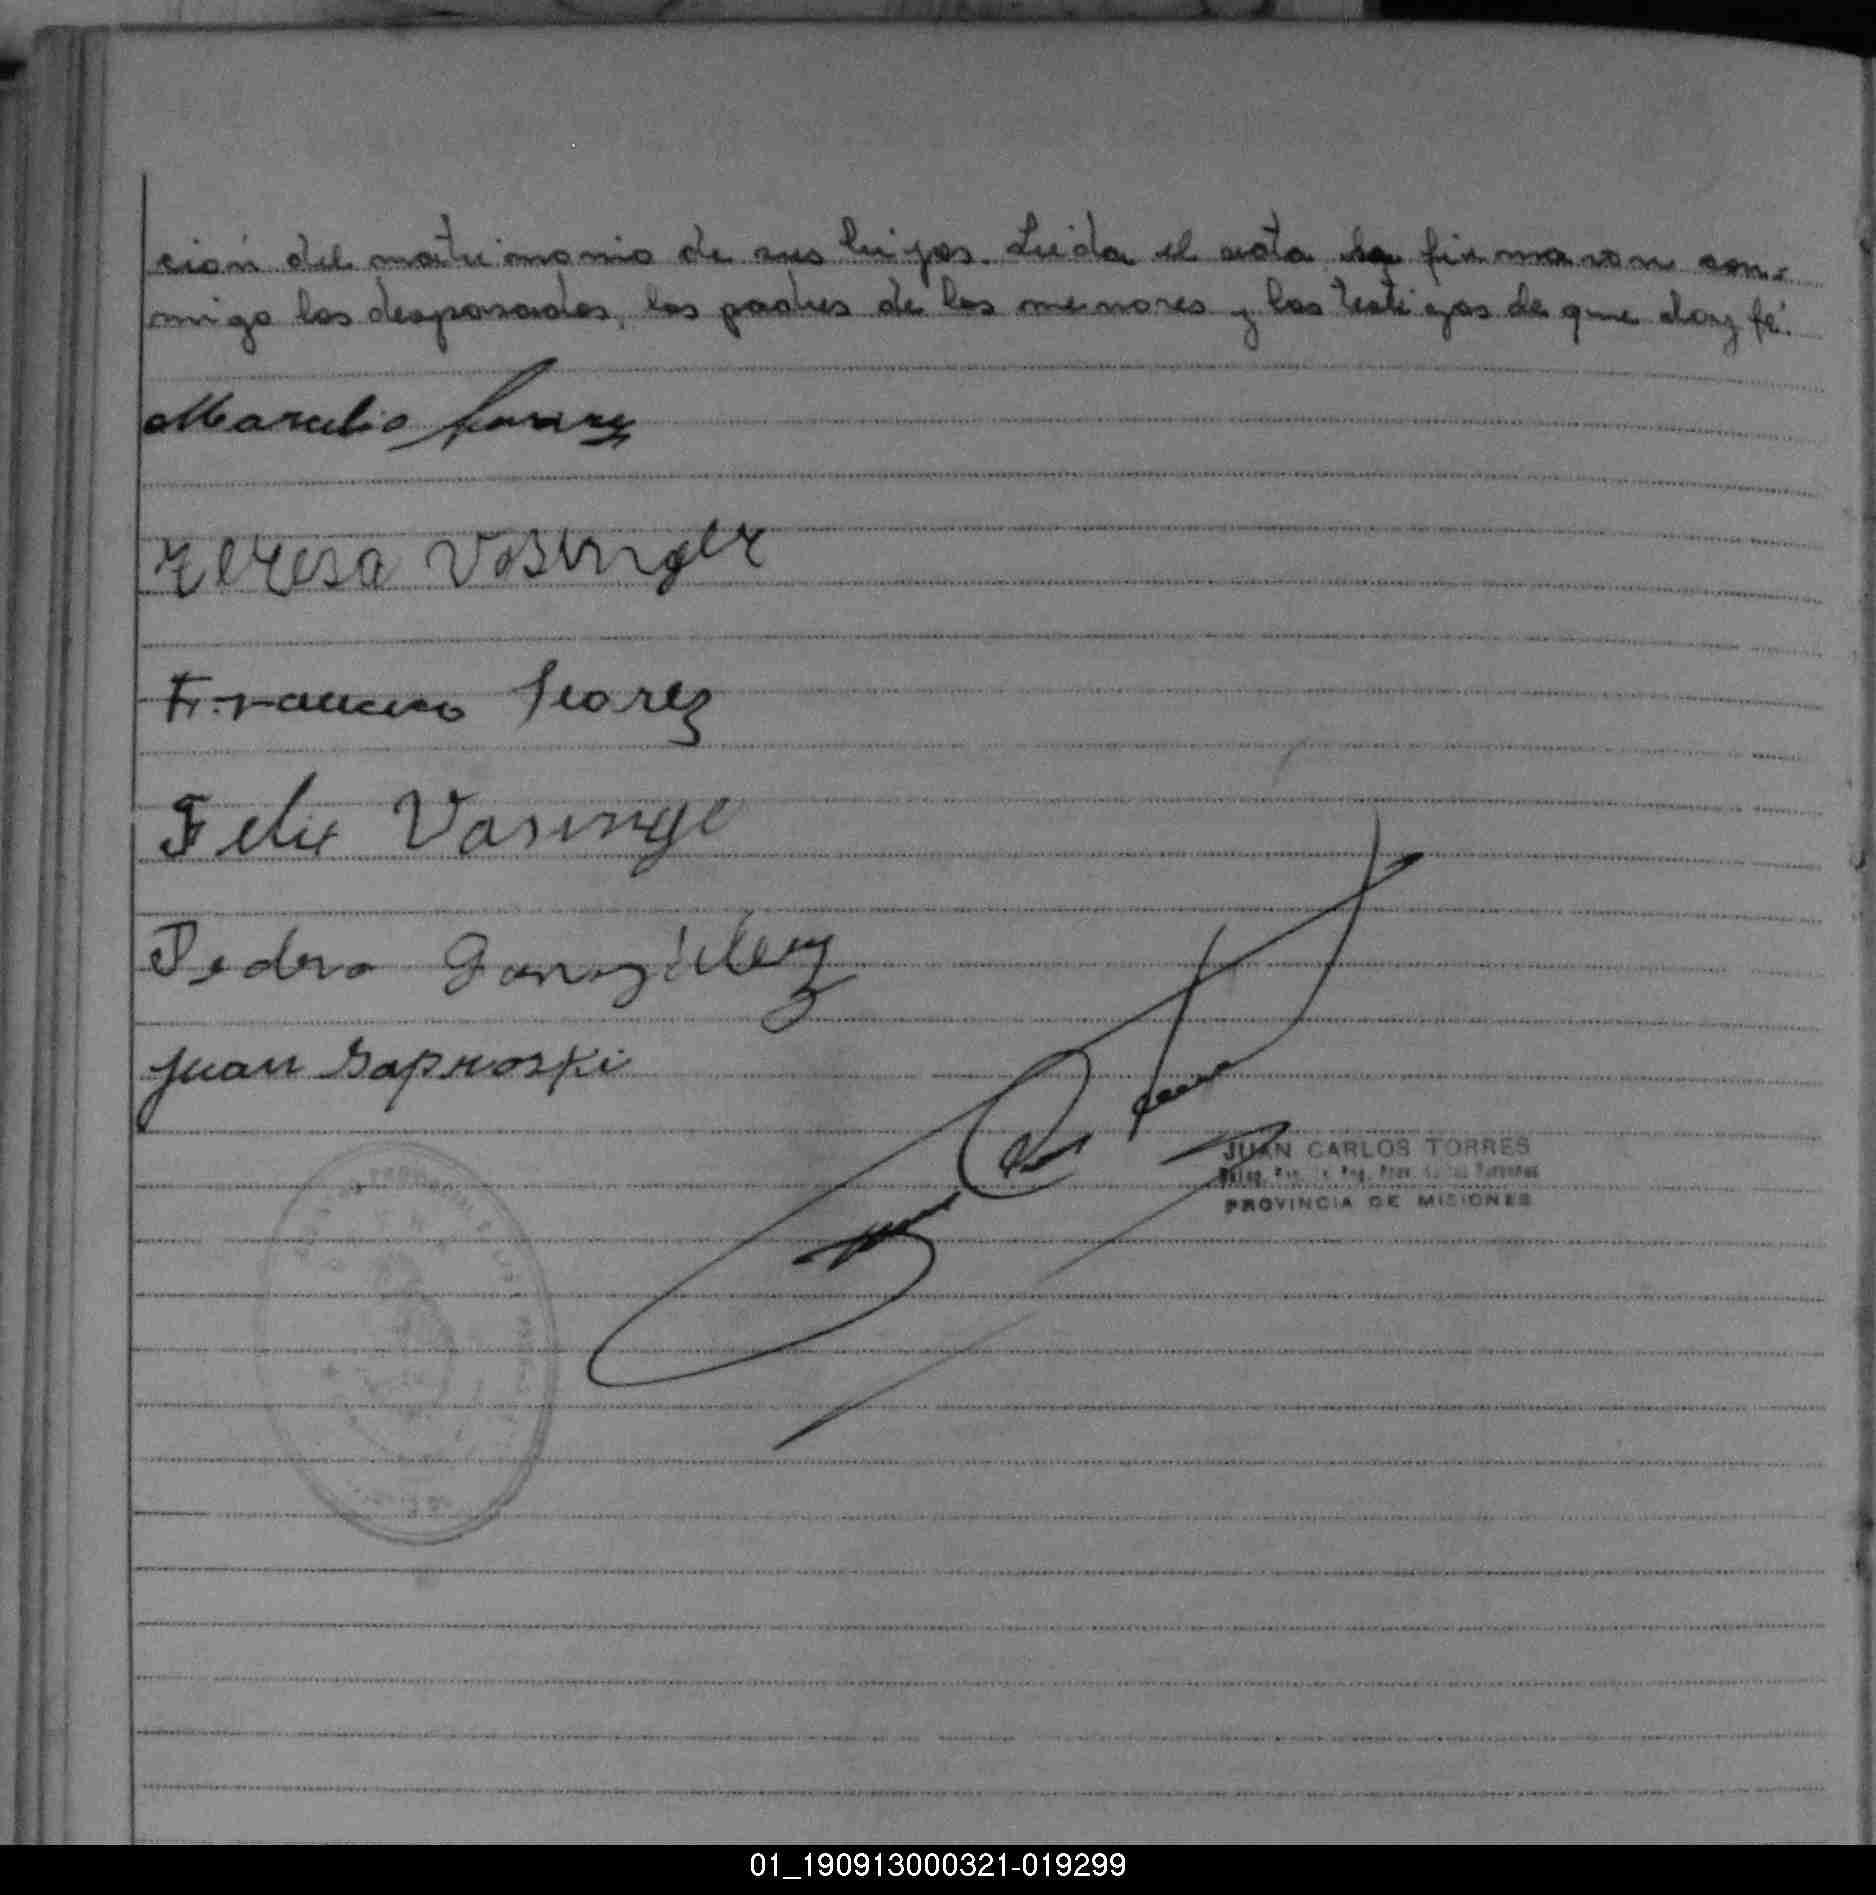 ción del matrimonio de sus hijos. Leida el acta la firmaron con-
migo los desposados, los padres de los menores y los testigos de que doy fé.
Marcelio
Teresa Vosinger
Francisco Suarez
Felix Vasinge
Pedro González
Juan Sapnoski
JUAN CARLOS TORRES
PROVINCIA DE MISIONES
01_190913000321-019299